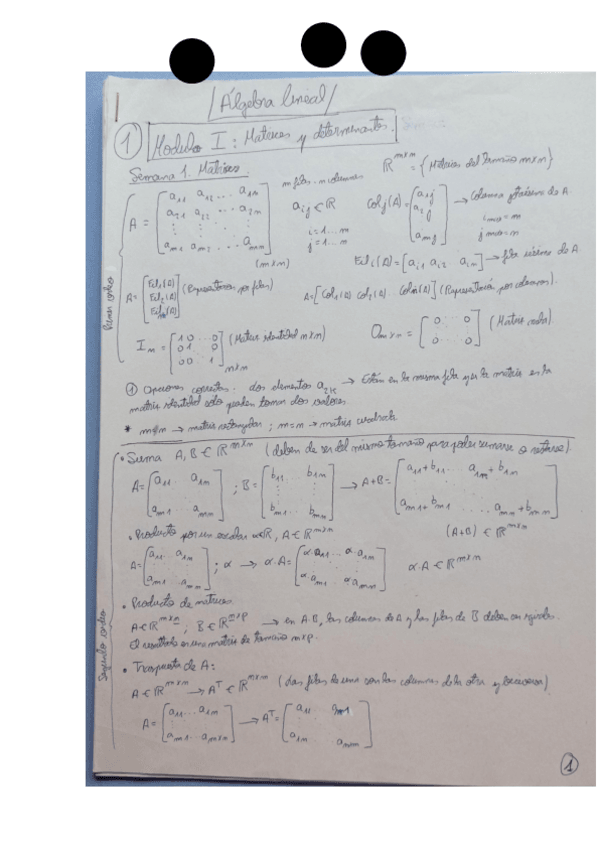 Álgebra lineal
① Modulo I: Matrices y determinantes.
Semana 1. Matrices
m filas · n columnas
ℝ^{m×n} = { Matrices del tamaño m×n }
A = [a_11 a_12 ... a_1n; a_21 a_22 ... a_2n; ⋮ ⋮ ⋱ ⋮; a_m1 a_m2 ... a_mn] (m×n)
a_ij ∈ ℝ
i = 1...m
j = 1...n
Col_j(A) = [a_1j; a_2j; a_mj] → Columna j-ésima de A
i max = m
j max = n
Fil_i(A) = [a_i1 a_i2 a_in] → fila i-ésima de A.
Primer vídeo
A = [Fil_1(A); Fil_2(A); Fil_m(A)] (Representación por filas)
A = [Col_1(A) Col_2(A) ... Col_n(A)] (Representación por columnas).
I_n = [1 0 ... 0; 0 1 0; 0 0 1] n×n (Matriz identidad n×n)
O_m×n = [0 0; 0 0] (Matriz nula).
① Opciones correctas. dos elementos a_2k → Están en la misma fila y en la matriz
matriz identidad solo pueden tomar dos valores
* m≠n → matriz rectangular ; m=n → matriz cuadrada
Segundo vídeo
• Suma A, B ∈ ℝ^{m×n} (deben de ser del mismo tamaño para poder sumarse o restarse)
A = [a_11 a_1n; a_m1 a_mn] ; B = [b_11 b_1n; b_m1 b_mn] → A+B = [a_11+b_11 ... a_1n+b_1n; a_m1+b_m1 ... a_mn+b_mn]
• Producto por un escalar α∈ℝ, A∈ℝ^{m×n}
(A+B) ∈ ℝ^{m×n}
A = [a_11 ... a_1n; a_m1 ... a_mn] ; α → α·A = [α·a_11 ... α·a_1n; α·a_m1 α·a_mn] α·A ∈ ℝ^{m×n}
• Producto de matrices.
A∈ℝ^{m×n} ; B∈ℝ^{n×p} → en A·B, las columnas de A y las filas de B deben ser iguales.
El resultado es una matriz de tamaño m×p.
• Traspuesta de A:
A∈ℝ^{m×n} → A^T∈ℝ^{n×m} (Las filas de una son las columnas de la otra y viceversa)
A = [a_11 ... a_1n; a_m1 ... a_mn] → A^T = [a_11 a_m1; a_1n a_mn]
1